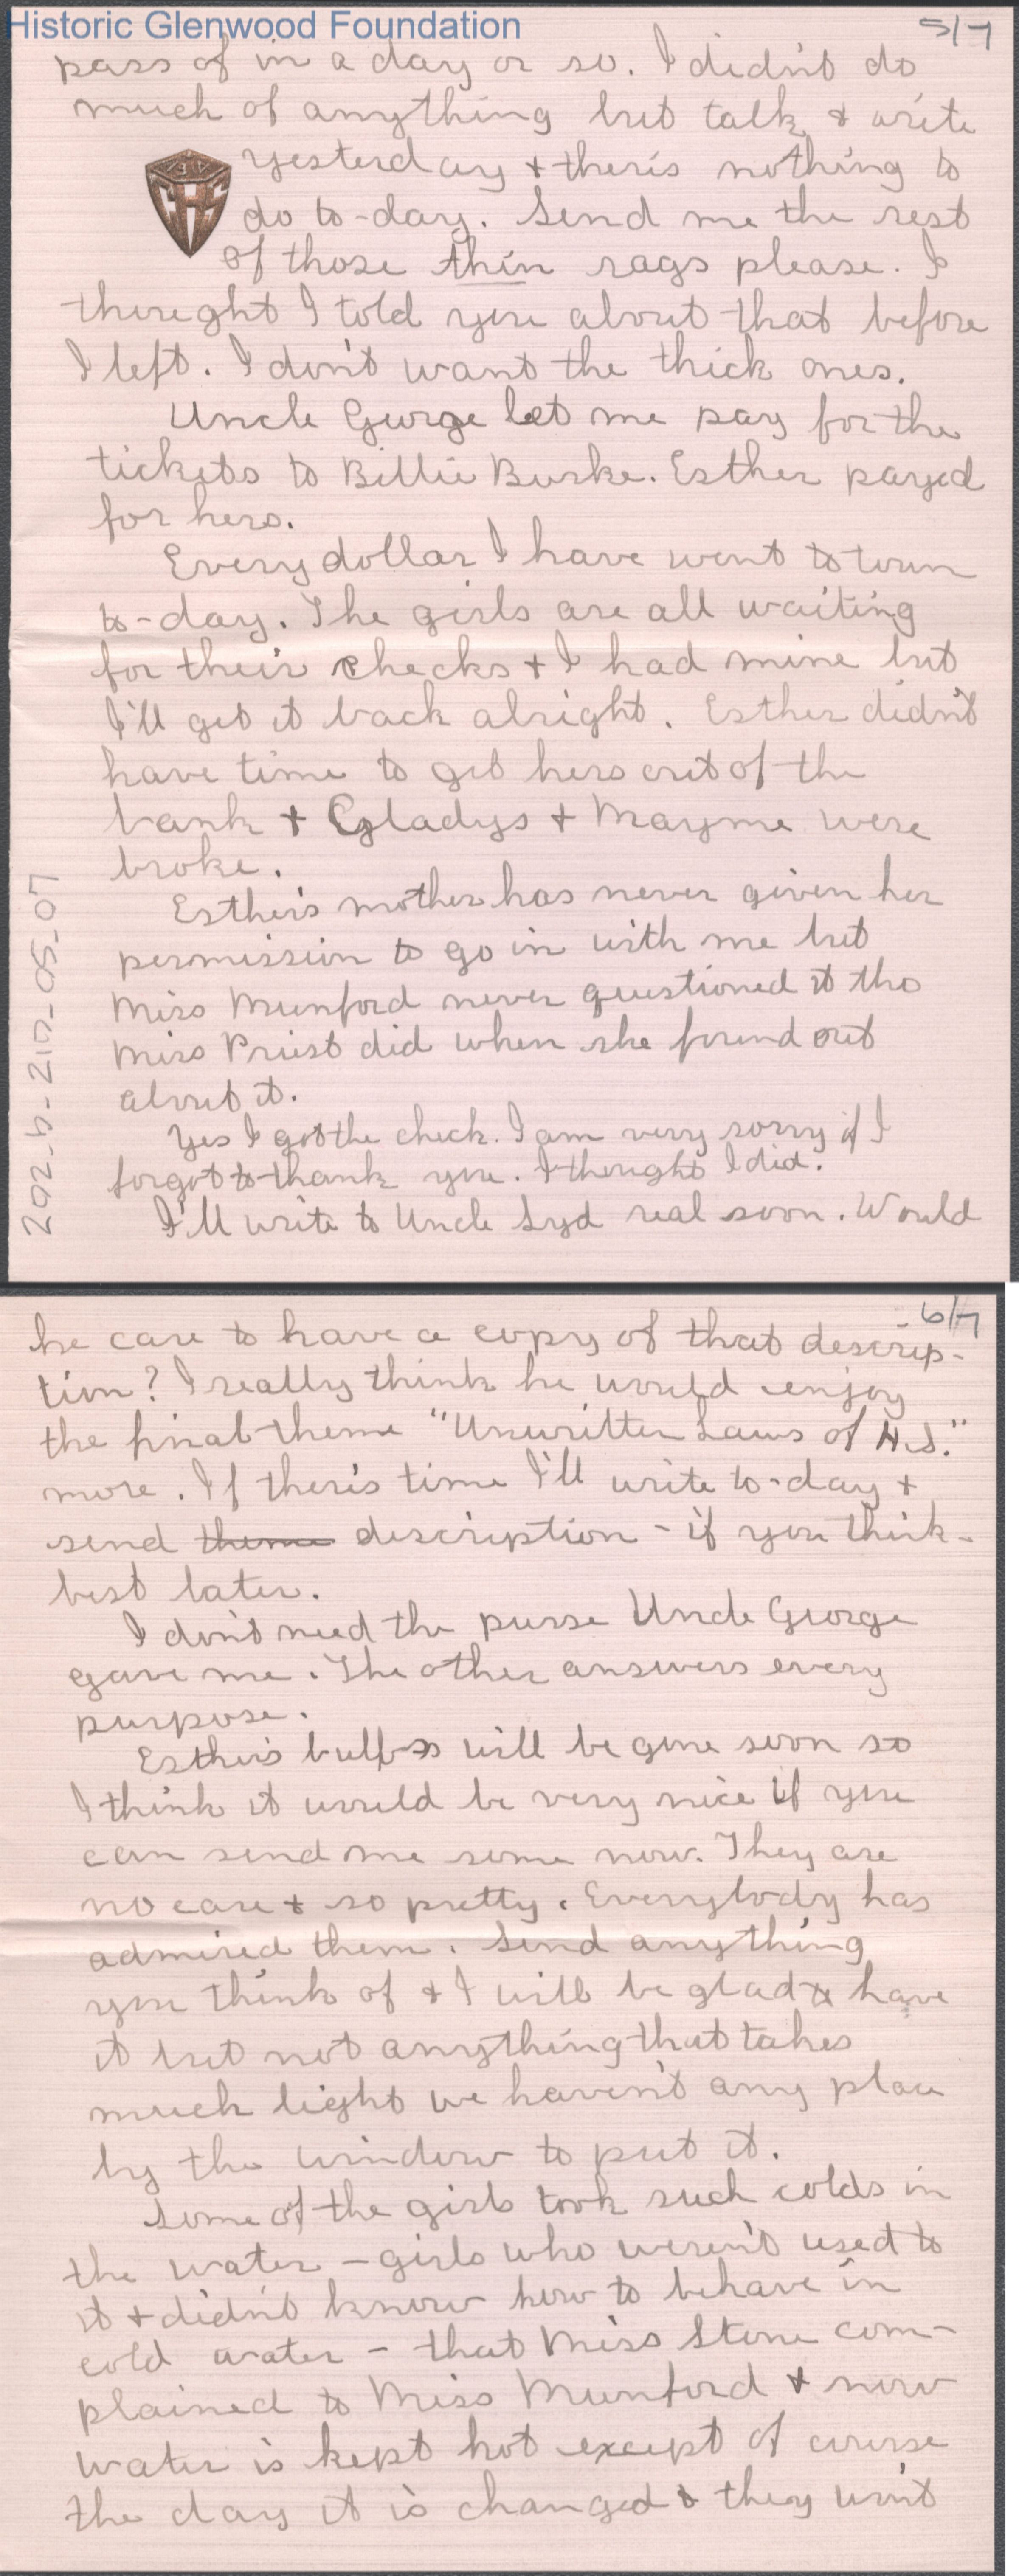 Historic Glenwood Foundation
5/7
pass of in a day or so. I didn't do
much of anything but talk & write
yesterday & there's nothing to
do to-day. Send me the rest
of those thin rags please. I
thought I told you about that before
I left. I don't want the thick ones.
Uncle George let me pay for the
tickets to Billie Burke. Esther payed
for hers.
Every dollar I have went to town
to-day. The girls are all waiting
for their checks & I had mine but
I'll get it back alright. Esther didn't
have time to get hers out of the
bank & Gladys & Mayme were
broke.
Esther's mother has never given her
permission to go in with me but
Miss Munford never questioned it tho
Miss Priest did when she found out
about it.
Yes I got the check. I am very sorry if I
forgot to thank you. I thought I did.
I'll write to Uncle Syd real soon. Would
202-b-210-05-07
6/7
he care to have a copy of that descrip-
tion? I really think he would enjoy
the final theme "Unwritten Laws of H.S."
more. If there's time I'll write to-day &
send theme description - if you think
best later.
I don't need the purse Uncle George
gave me. The other answers every
purpose.
Esther's bulbs will be gone soon so
I think it would be very nice if you
can send me some now. They are
no care & so pretty. Everybody has
admired them. Send anything
you think of & I will be glad to have
it but not anything that takes
much light we haven't any place
by the window to put it.
Some of the girls took such colds in
the water - girls who weren't used to
it & didn't know how to behave in
cold water - that Miss Stone com-
plained to Miss Munford & now
water is kept hot except of course
the day it is changed & they won't